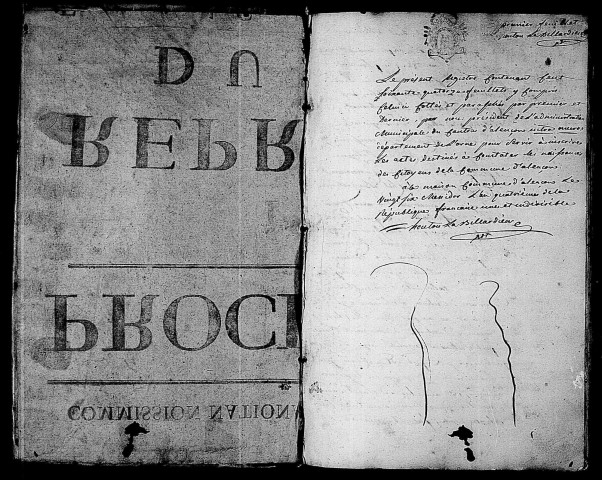 DU
REPR
PROCE
COMMISSION NATIONA
premier feuillet
houton La Billardiere
Le présent Registre Contenant Cent
soixante quatorze feuillets y Compris
Celuici Cottés et paraphés par premier et
Dernier, par nous président de l'administration
Municipale du Canton d'alençon intra muros
département de l'orne pour servir à inscrire
les actes destinés à Constater les naissances
des Citoyens de la Commune d'alençon
à la maison Commune d'alençon Le
Vingt six Messidor L'an quatrieme de la
République francaise une et indivisible
houton La Billardiere